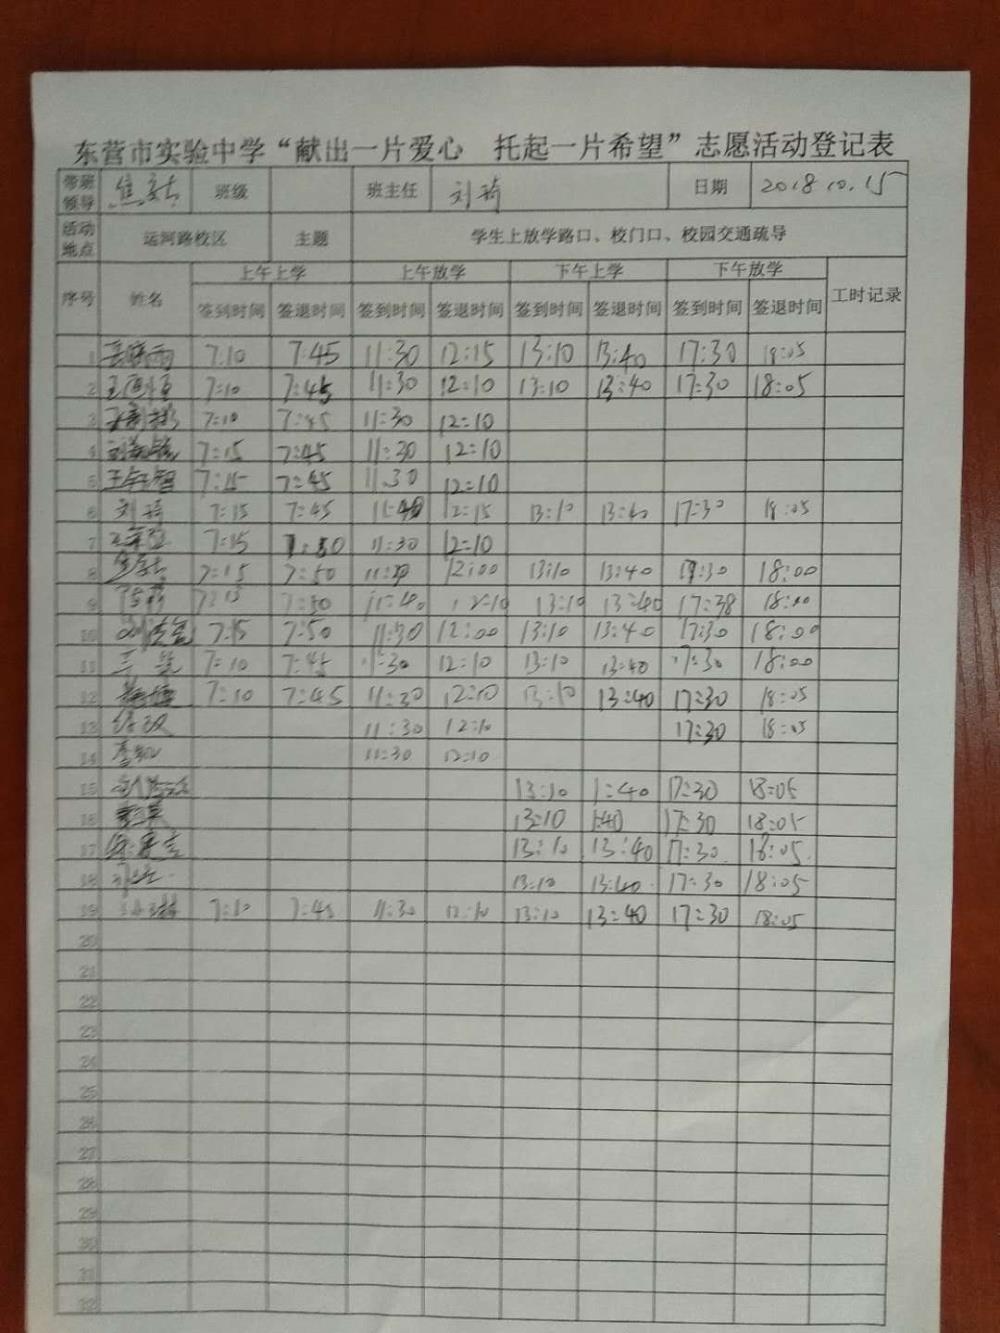 东营市实验中学“献出一片爱心 托起一片希望”志愿活动登记表
带班领导 班级 班主任 刘琦 日期 2018.10.15
活动地点 运河路校区 主题 学生上放学路口、校门口、校园交通疏导
序号 姓名 上午上学 上午放学 下午上学 下午放学 工时记录
签到时间 签退时间 签到时间 签退时间 签到时间 签退时间 签到时间 签退时间
1 7:10 7:45 11:30 12:15 13:10 13:40 17:30 18:05
2 7:10 7:45 11:30 12:10 13:10 13:40 17:30 18:05
3 7:10 7:45 11:30 12:10
4 7:15 7:45 11:30 12:10
5 7:15 7:45 11.30 12:10
6 刘琦 7:15 7:45 11:40 12:15 13:10 13:40 17:30 18:05
7 7:15 7:50 11:30 12:10
8 7:15 7:50 12:00 13:10 13:40 17:30 18:00
9 7:15 7:50 11:40 12:10 13:10 13:40 17:38 18:00
10 7:15 7:50 11:30 12:00 13:10 13:40 17:30 18:00
11 7:10 7:45 11:30 12:10 13:10 13:40 17:30 18:00
12 7:10 7:45 11:30 12:10 13:10 13:40 17:30 18:05
13 11:30 12:10 17:30 18:05
14 11:30 12:10
15 13:10 1:40 17:30 18:05
16 13:10 1:40 17:30 18:05
17 13:10 13:40 17:30 18:05
18 13:10 13:40 17:30 18:05
19 7:10 7:45 11:30 12:10 13:10 13:40 17:30 18:05
20
21
22
23
24
25
26
27
28
29
30
31
32